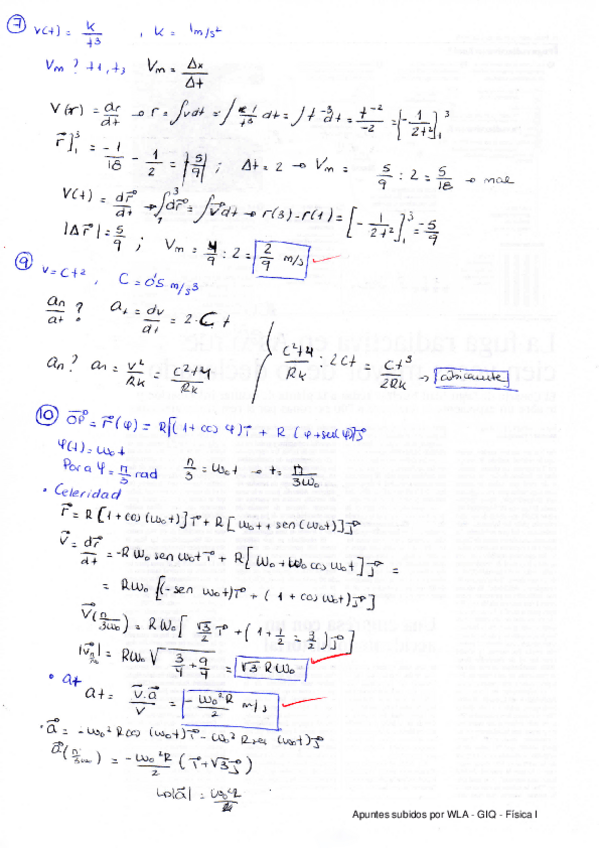 7 v(t) = k/t³ , k = 1 m/s²
Vm? t1, t3 Vm = Δx/Δt
V(r) = dr/dt → r = ∫vdt = ∫1/t³ dt = ∫t⁻³dt = t⁻²/-2 = [-1/2t²]₁³
r⃗]₁³ = -1/18 - 1/2 = |5/9| ; Δt = 2 → Vm = 5/9 : 2 = 5/18 → mal
V(t) = dr⃗/dt → ₁∫³dr⃗ = ∫v⃗dt → r(3) - r(1) = [-1/2t²]₁³ = -5/9
|Δr⃗| = 5/9 ; Vm = 4/9 : 2 = 2/9 m/s
9 v = Ct² , C = 0'5 m/s³
an/at ? at = dv/dt = 2·C t
an? an = v²/Rk = C²t4/Rk
C²t4/Rk · 2Ct = Ct³/2Rk →
10 OP⃗ = r⃗(φ) = R[(1 + cos φ)i⃗ + R (φ + sen φ)j⃗
φ(t) = ω₀t
Para φ = π/3 rad π/3 = ω₀t → t = π/3ω₀
• Celeridad
r⃗ = R[1 + cos(ω₀t)]i⃗ + R[ω₀t + sen(ω₀t)]j⃗
v⃗ = dr⃗/dt = -Rω₀ sen ω₀t i⃗ + R[ω₀ + ω₀ cos ω₀t]j⃗ =
= Rω₀ [(-sen ω₀t)i⃗ + (1 + cos ω₀t)j⃗]
v⃗(π/3ω₀) = Rω₀[√3/2 i⃗ + (1 + 1/2 = 3/2)j⃗]
|v| = Rω₀ √3/4 + 9/4 = √3 Rω₀
• at
at = v⃗·a⃗/v = -ω₀²R/2 m/s
• a⃗ = -ω₀²R cos(ω₀t)i⃗ - ω₀²R sen(ω₀t)j⃗
a⃗(π/3ω₀) = -ω₀²R/2 (i⃗ + √3j⃗)
Apuntes subidos por WLA - GIQ - Física I